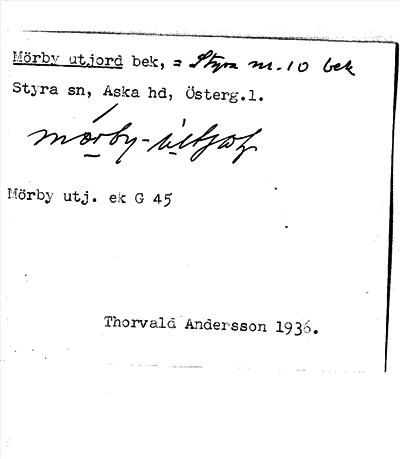 Mörby utjord bek, = Styra nr. 10 bek
Styra sn, Aska hd, Österg.l.
Mörby utj. ek G 45
Thorvald Andersson 1936.